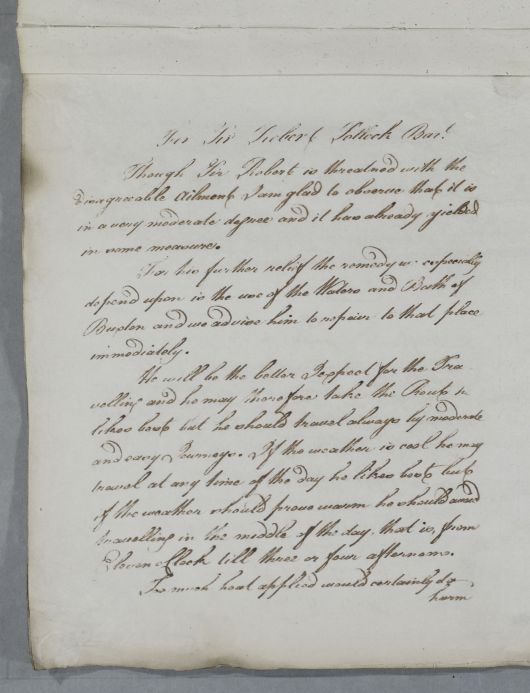 For Sir Robert Pollock Bart.
Though Sir Robert is threatned with the
disagreeable ailment I am glad to observe that it is
in a very moderate degree and it has already yielded
in some measure.
For his further relief the remedy we especially
depend upon is the use of the Waters and Bath of
Buxton and we advise him to repair to that place
immediately.
He will be the better Respect for the Tra
velling and he may therefore take the Rout he
likes best but he should travel always by moderate
and easy Journeys. If the weather is cool he may
travel at any time of the day he likes best but
if the weather should prove warm he should avoid
travelling in the middle of the day, that is, from
Eleven oClock till three or four afternoon.
Too much heat applied would certainly do
harm